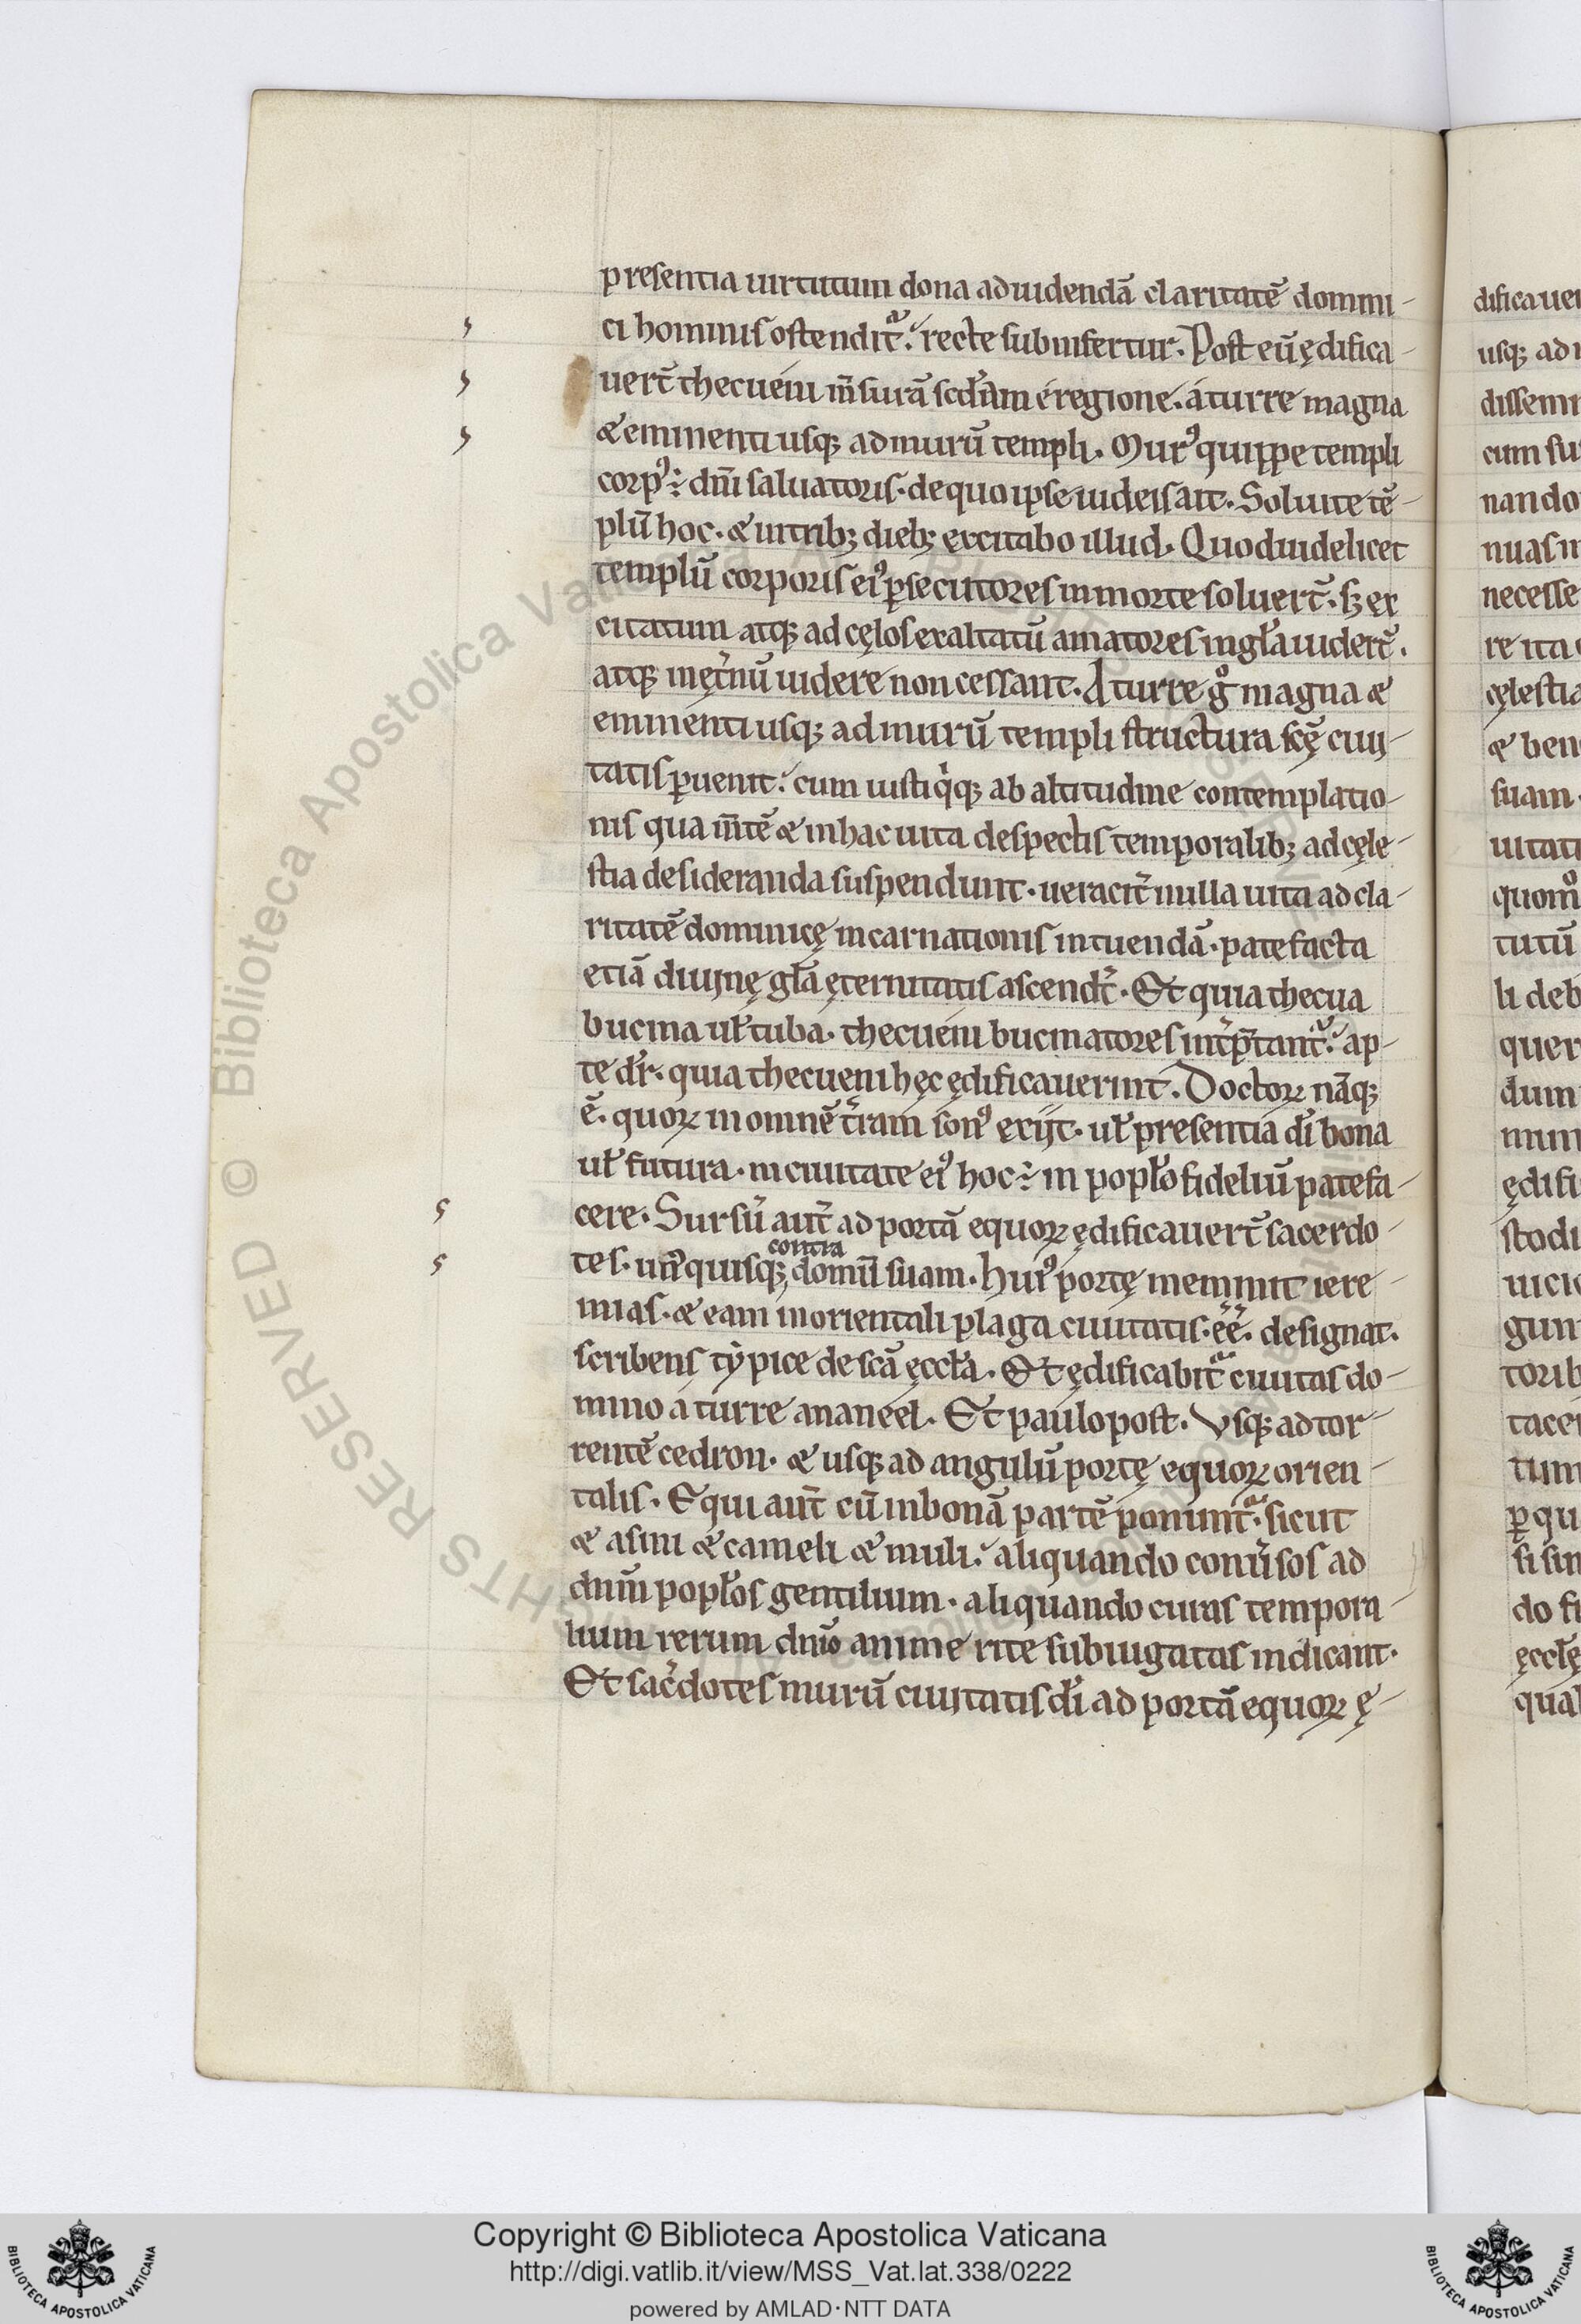 presentia uirtutum dona ad uidendā claritatē domini-
ci hominis ostendit᷑. recte subinfertur. Post eū ędifica-
uert̄ thecueni m̄surā scd̄am e regione. a turre magna
& eminenti usq; ad murū templi. Murꝰ quippe templi
corpꝰ ÷ dn̄i saluatoris. de quo ipse iudeis ait. Soluite tē-
plū hoc. & in trib; dieb; excitabo illud. Quod uidelicet
templū corporis eiꝰ ꝑsecutores in morte soluert̄. sꝫ ex
citatum atq; ad cęlos exaltatū amatores in gl̄a uidert̄.
atq; in ęt̓nū uidere non cessant. A turre gͦ magna &
eminenti usq; ad murū templi structura scę̄ ciui-
tatis ꝑuenit. cum iusti qͥq; ab altitudine contemplatio-
nis qua m̄tē & in hac uita despectis temporalib; ad cęle-
stia desideranda suspendunt. ueracit̓ in illa uita ad cla-
ritatē dominicę incarnationis intuendā. patefacta
etiā diuinę gl̄a ęternitatis ascendt̄. Et quia thecua
bucina ul̄ tuba. thecueni bucinatores int̓p̄tant᷑. ap-
te dr̄. quia thecueni hęc ędificauerint. Doctoꝝ nāq;
ē. quoꝝ in omnē t̓ram sonꝰ exiit. ul̄ presentia dī bona
ul̄ futura. in ciuitate eiꝰ hoc ÷ in popl̄o fideliū patefa-
cere. Sursū aut̄ ad portā equoꝝ ędificauert̄ sacerdo-
contra
tes. unꝰquisq; domū suam. Huiꝰ portę meminit iere-
mias. & eam in orientali plaga ciuitatis. ēē. designat.
scribens typice de sc̄a ęccl̄a. Et ędificabit᷑ ciuitas do-
mino a turre ananeel. Et paulo post. Vsq; ad tor-
rentē cedron. & usq; ad angulū portę equoꝝ orien-
talis. Equi aut̄ cū in bonā partē ponunt᷑. sicut
& asini & cameli & muli. aliquando conu̓sos ad
dn̄m popl̄os gentilium. aliquando curas tempora-
lium rerum dn̄io anime rite subiugatas indicant.
Et sac̓dotes murū ciuitatis dī ad portā equoꝝ ę-
Copyright © Biblioteca Apostolica Vaticana
http://digi.vatlib.it/view/MSS_Vat.lat.338/0222
powered by AMLAD·NTT DATA